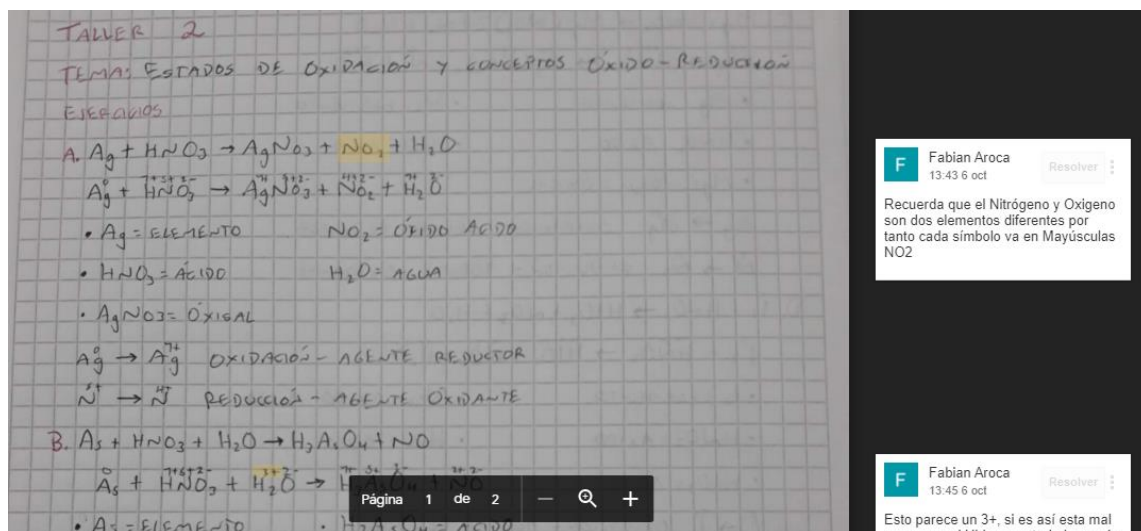 TALLER 2
TEMA: ESTADOS DE OXIDACIÓN Y CONCEPTOS ÓXIDO-REDUCCIÓN
EJERCICIOS
A. Ag + HNO3 → AgNO3 + No2 + H2O
Ag + HNO3 → AgNO3 + NO2 + H2O
• Ag = ELEMENTO NO2 = ÓXIDO ACIDO
• HNO3 = ÁCIDO H2O = AGUA
• AgNO3 = OXISAL
Ag → Ag OXIDACIÓN - AGENTE REDUCTOR
N → N REDUCCIÓN - AGENTE OXIDANTE
B. As + HNO3 + H2O → H3AsO4 + NO
As + HNO3 + H2O →
• As = ELEMENTO • H3AsO4 = ACIDO
Página 1 de 2 — +
F Fabian Aroca
13:43 6 oct Resolver
Recuerda que el Nitrógeno y Oxigeno
son dos elementos diferentes por
tanto cada símbolo va en Mayúsculas
NO2
F Fabian Aroca
13:45 6 oct Resolver
Esto parece un 3+, si es así esta mal